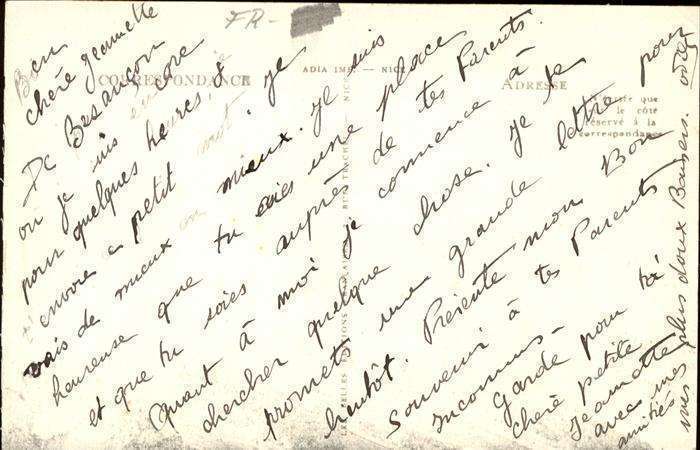 FR-
CORRESPONDANCE
ADIA IMP. — NICE
ADRESSE
le côté
réservé à la
correspondance
Chère Jeannette
De Besançon
ou je suis encore
pour quelques heures, je
t'envoie un petit mot, je
vais de mieux en mieux. Je suis
heureuse que tu aies une place
et que tu sois auprès de tes Parents.
Quant à moi je commence à
chercher quelque chose. Je te
promets une grande lettre pour
bientôt. Présente mon Bon
Souvenir à tes Parents
inconnus.
Garde pour toi
chère petite
Jeannette
avec mes
amitiés
mes plus doux Baisers.